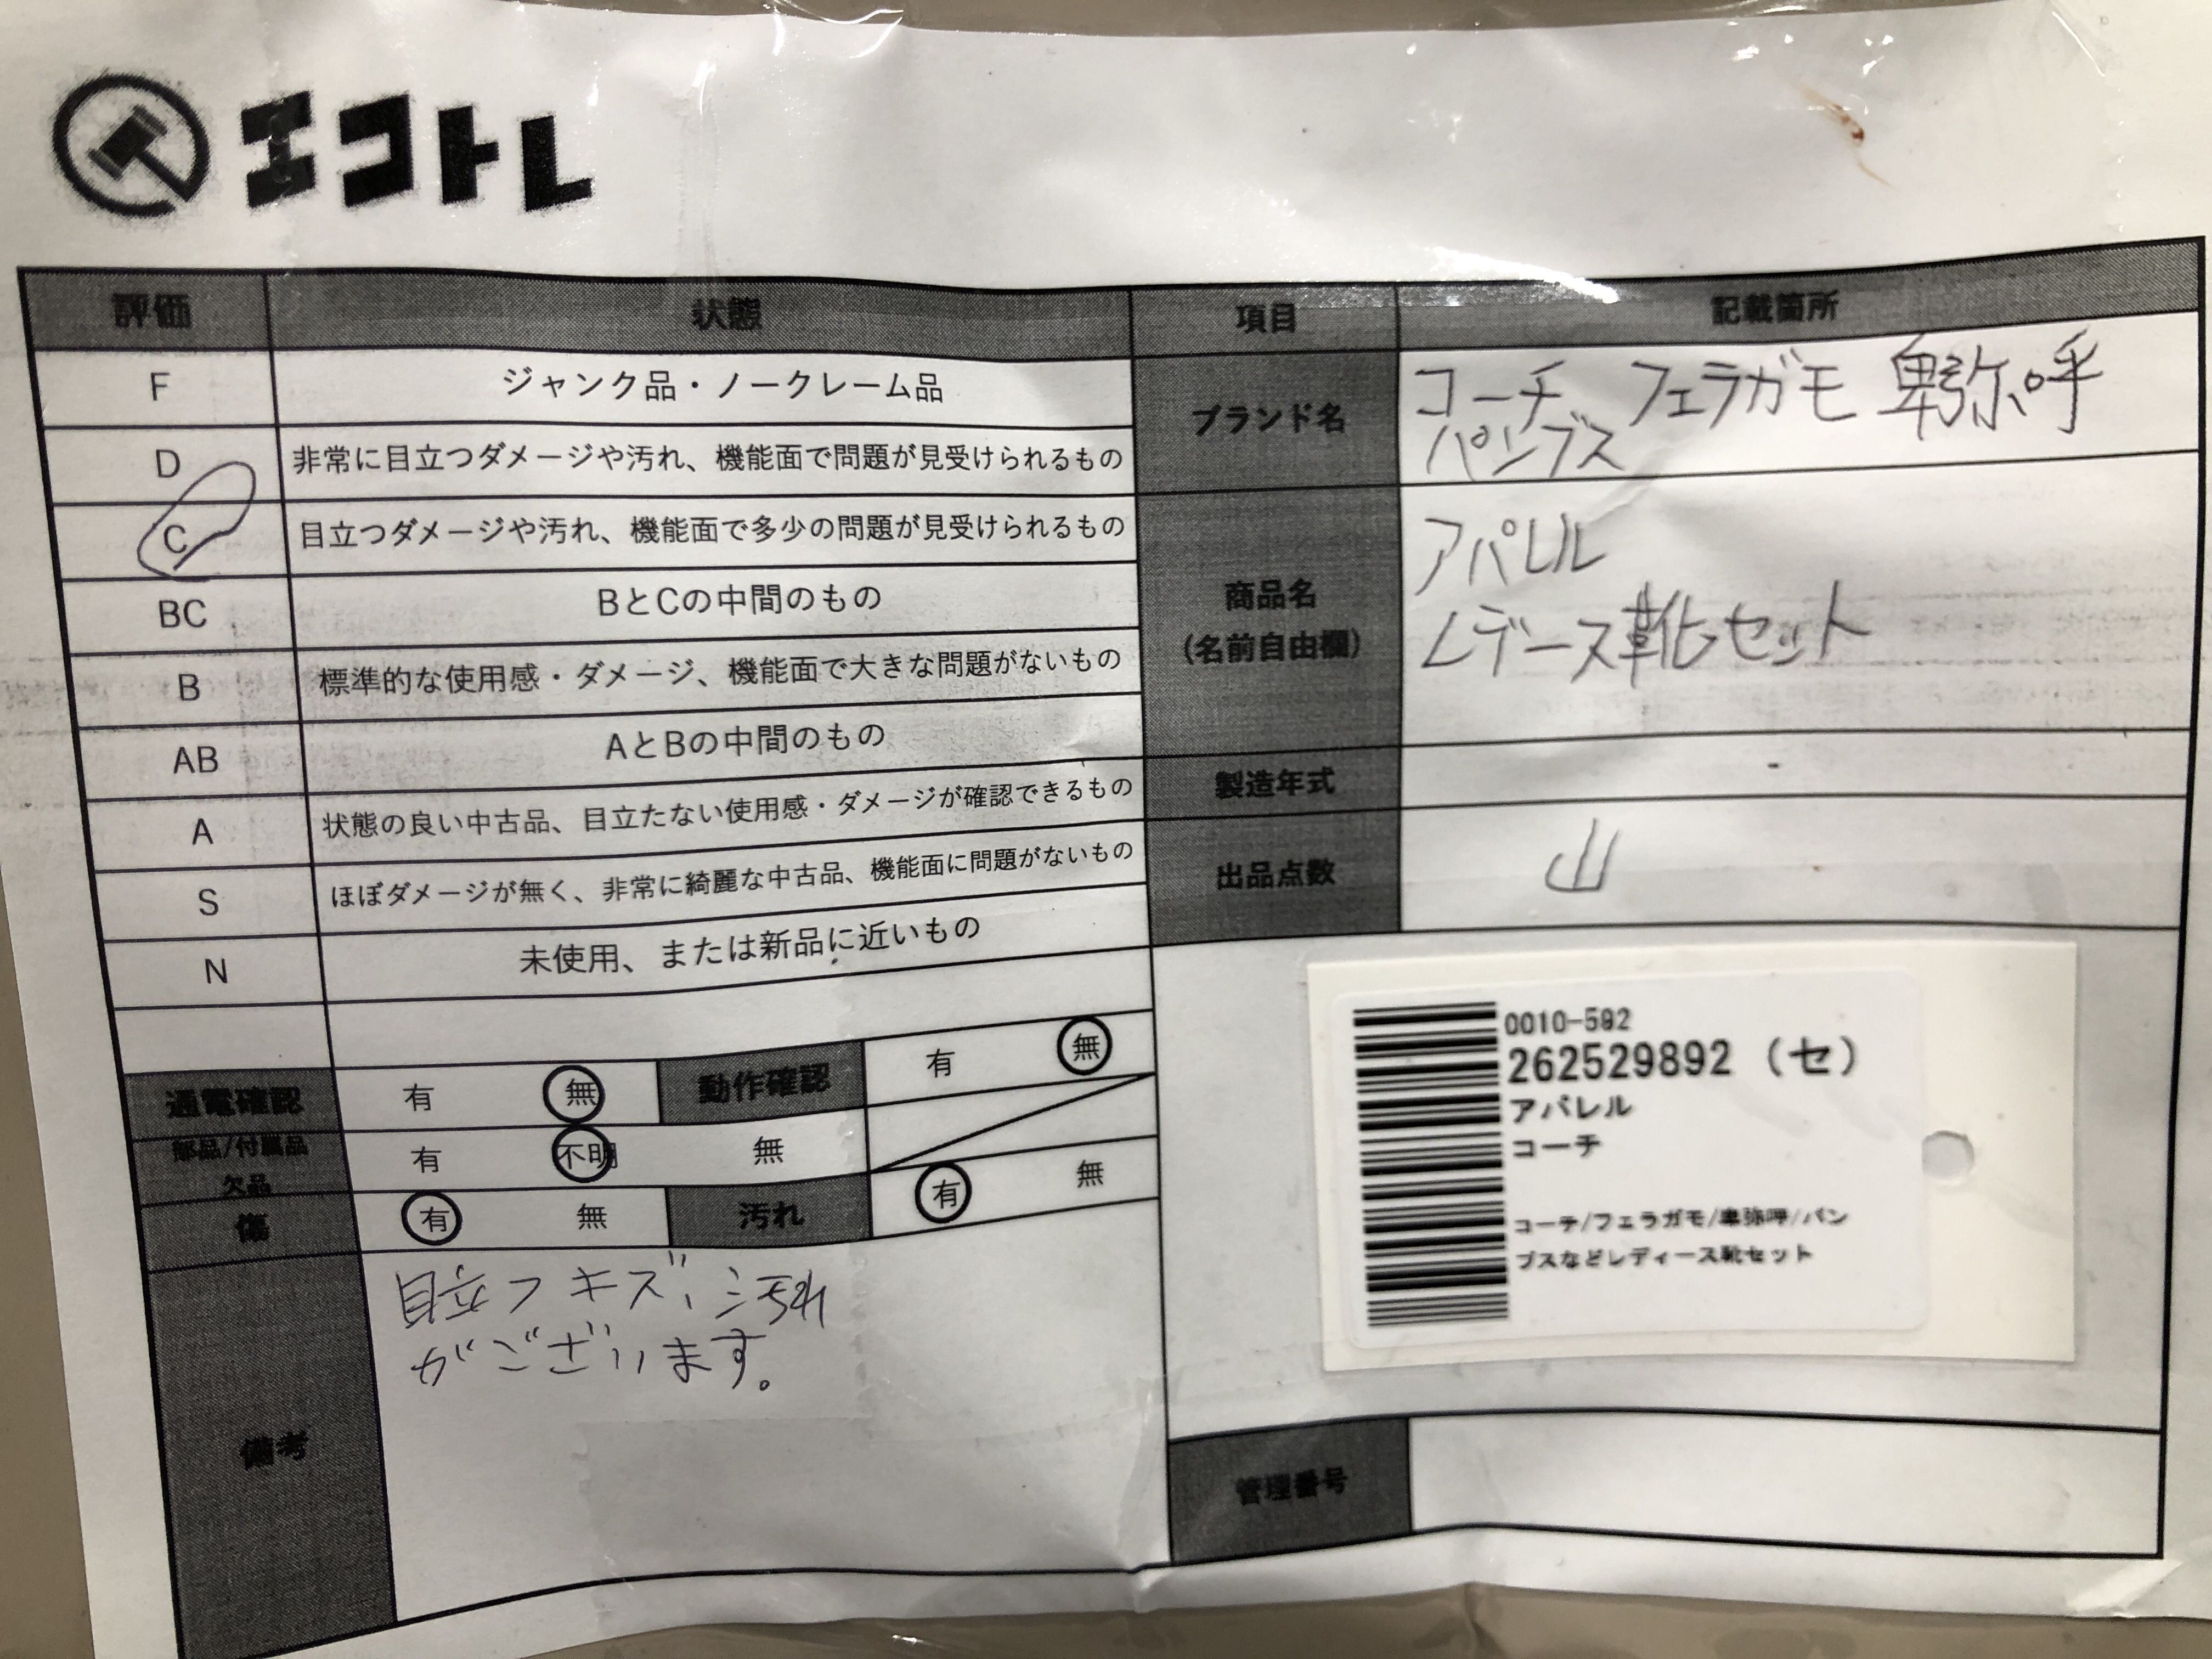 エコトレ
評価 状態 項目 記載箇所
F ジャンク品・ノークレーム品
D 非常に目立つダメージや汚れ、機能面で問題が見受けられるもの
C 目立つダメージや汚れ、機能面で多少の問題が見受けられるもの
BC BとCの中間のもの
B 標準的な使用感・ダメージ、機能面で大きな問題がないもの
AB AとBの中間のもの
A 状態の良い中古品、目立たない使用感・ダメージが確認できるもの
S ほぼダメージが無く、非常に綺麗な中古品、機能面に問題がないもの
N 未使用、または新品に近いもの
通電確認 有 無 動作確認 有 無
部品/付属品
欠品 有 不明 無
傷 有 無 汚れ 有 無
備考
目立つキズ、汚れ
がございます。
ブランド名
コーチ フェラガモ 卑弥呼
パンプス
商品名
(名前自由欄)
アパレル
レデース靴セット
製造年式 -
出品点数 山
0010-592
262529892 (セ)
アパレル
コーチ
コーチ/フェラガモ/卑弥呼/パン
プスなどレディース靴セット
管理番号